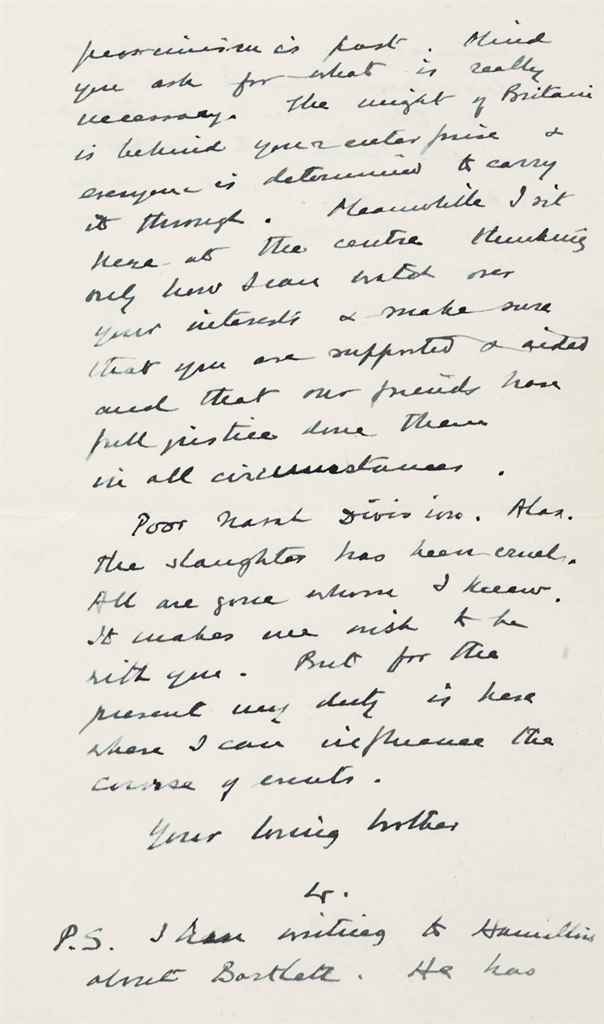 pessimism is past. Mind
you ask for what is really
necessary. The might of Britain
is behind your enterprise &
everyone is determined to carry
it through. Meanwhile I sit
here at the centre thinking
only how I can watch over
your interests & make sure
that you are supported & aided
and that our friends have
full justice done them
in all circumstances.
Poor Naval Division. Alas.
the slaughter has been cruel.
All are gone whom I knew.
It makes me wish to be
with you. But for the
present my duty is here
where I can influence the
course of events.
Your loving brother
W.
P.S. I am writing to Hamilton
about Bartlett. He has